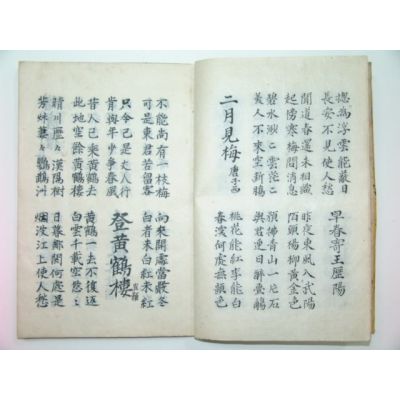 摠為浮雲能蔽日
長安不見使人愁
早春寄王漢陽
聞道春還未相識 昨夜東風入武陽
起傍寒梅問消息 陌頭楊柳黃金色
碧水渺々雲茫々 預拂青山一片石
美人不來空斷腸 與君連日醉壺觴
二月見梅 唐子西
桃花能紅李能白
春深何處無顏色
不能尚有一枝梅 向來開處當嚴冬
可是東君苦留客 白者未白紅未紅
只今已是丈人行
肯與年少爭春風
登黃鶴樓 崔顥
昔人已乘黃鶴去 黃鶴一去不復返
此地空餘黃鶴樓 白雲千載空悠々
晴川歷々漢陽樹 日暮鄉関何處是
芳草萋々鸚鵡洲 烟波江上使人愁